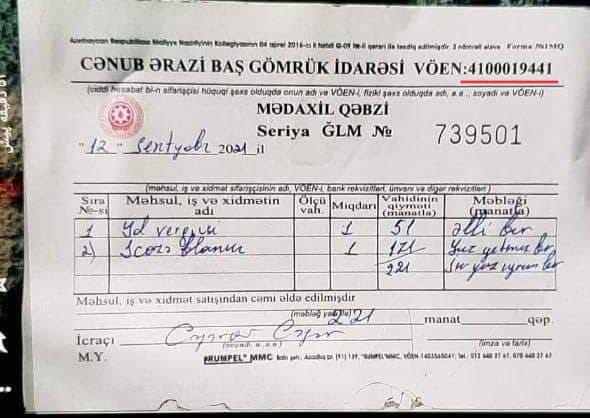 Azərbaycan Respublikası Maliyyə Nazirliyinin Kollegiyasının 04 aprel 2016-cı il tarixli Q-09 №-li qərarı ilə təsdiq edilmişdir 2 nömrəli əlavə Forma №1MQ
CƏNUB ƏRAZİ BAŞ GÖMRÜK İDARƏSİ VÖEN:4100019441
(ciddi hesabat bl-n sifarişçisi hüquqi şəxs olduqda onun adı və VÖEN-i, fiziki şəxs olduqda adı, a.a., soyadı və VÖEN-i)
MƏDAXİL QƏBZİ
Seriya ĞLM № 739501
"12" Sentyabr 2021 il
(məhsul, iş və xidmət sifarişçisinin adı, VÖEN-i, bank rekvizitləri, ünvanı və digər rekvizitləri)
Sıra №-si Məhsul, iş və xidmətin adı Ölçü vah. Miqdarı Vahidinin qiyməti (manatla) Məbləği (manatla)
1 Yol vergisi 1 51 əlli bir
2) 1 171 Yüz yetmiş bir
221
Məhsul, iş və xidmət satışından cəmi əldə edilmişdir
(məbləğ yazı ilə) 221 manat qəp.
İcraçı
(soyadı, a.a.a.) (imza və tarix)
M.Y. "RUMPEL" MMC Bakı şəh.